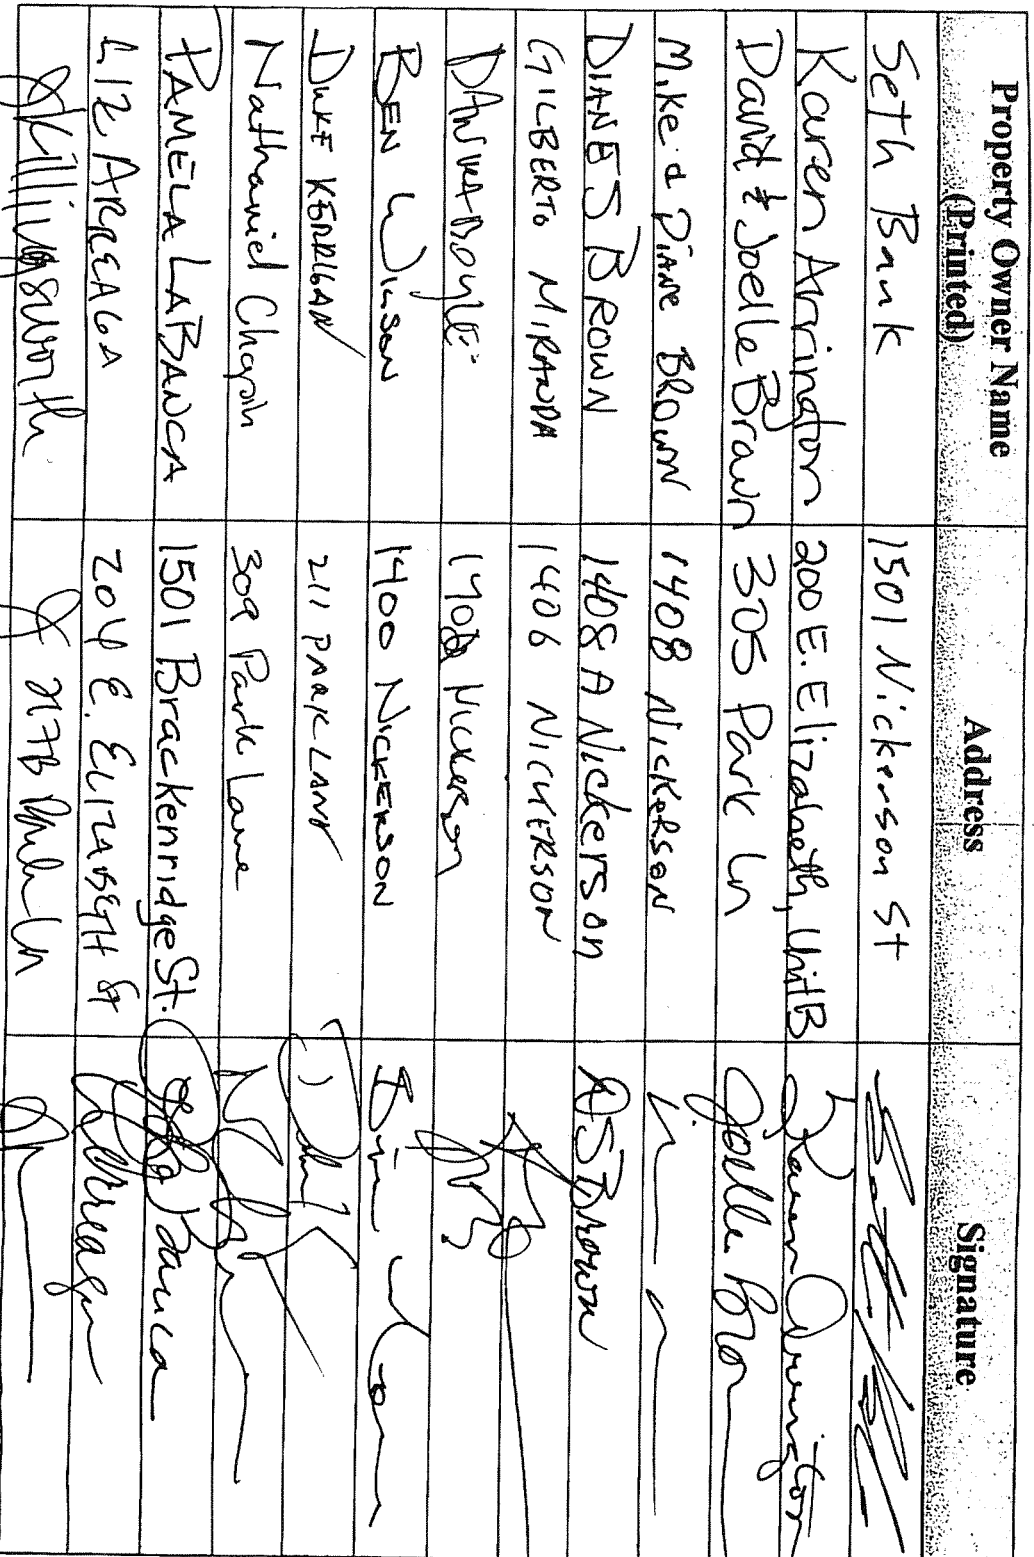 Property Owner Name (Printed) Address Signature
Seth Bank 1501 Nickerson St
Karen Arrington 200 E. Elizabeth, Unit B Karen Arrington
David & Joelle Brown 305 Park Ln Joelle Bro
Mike & Diane Brown 1408 Nickerson
DIANE S BROWN 1408 A Nickerson DS Brown
GILBERTO MIRANDA 1406 NICKERSON
Nickerson
BEN WILSON 1400 NICKERSON
DUKE KERRIGAN 211 PARK LANE
Nathaniel Chapin 309 Park Lane
PAMELA LABANCA 1501 Brackenridge St.
LIZ ARREAGA 204 E. ELIZABETH St
Killingsworth 217B Ln